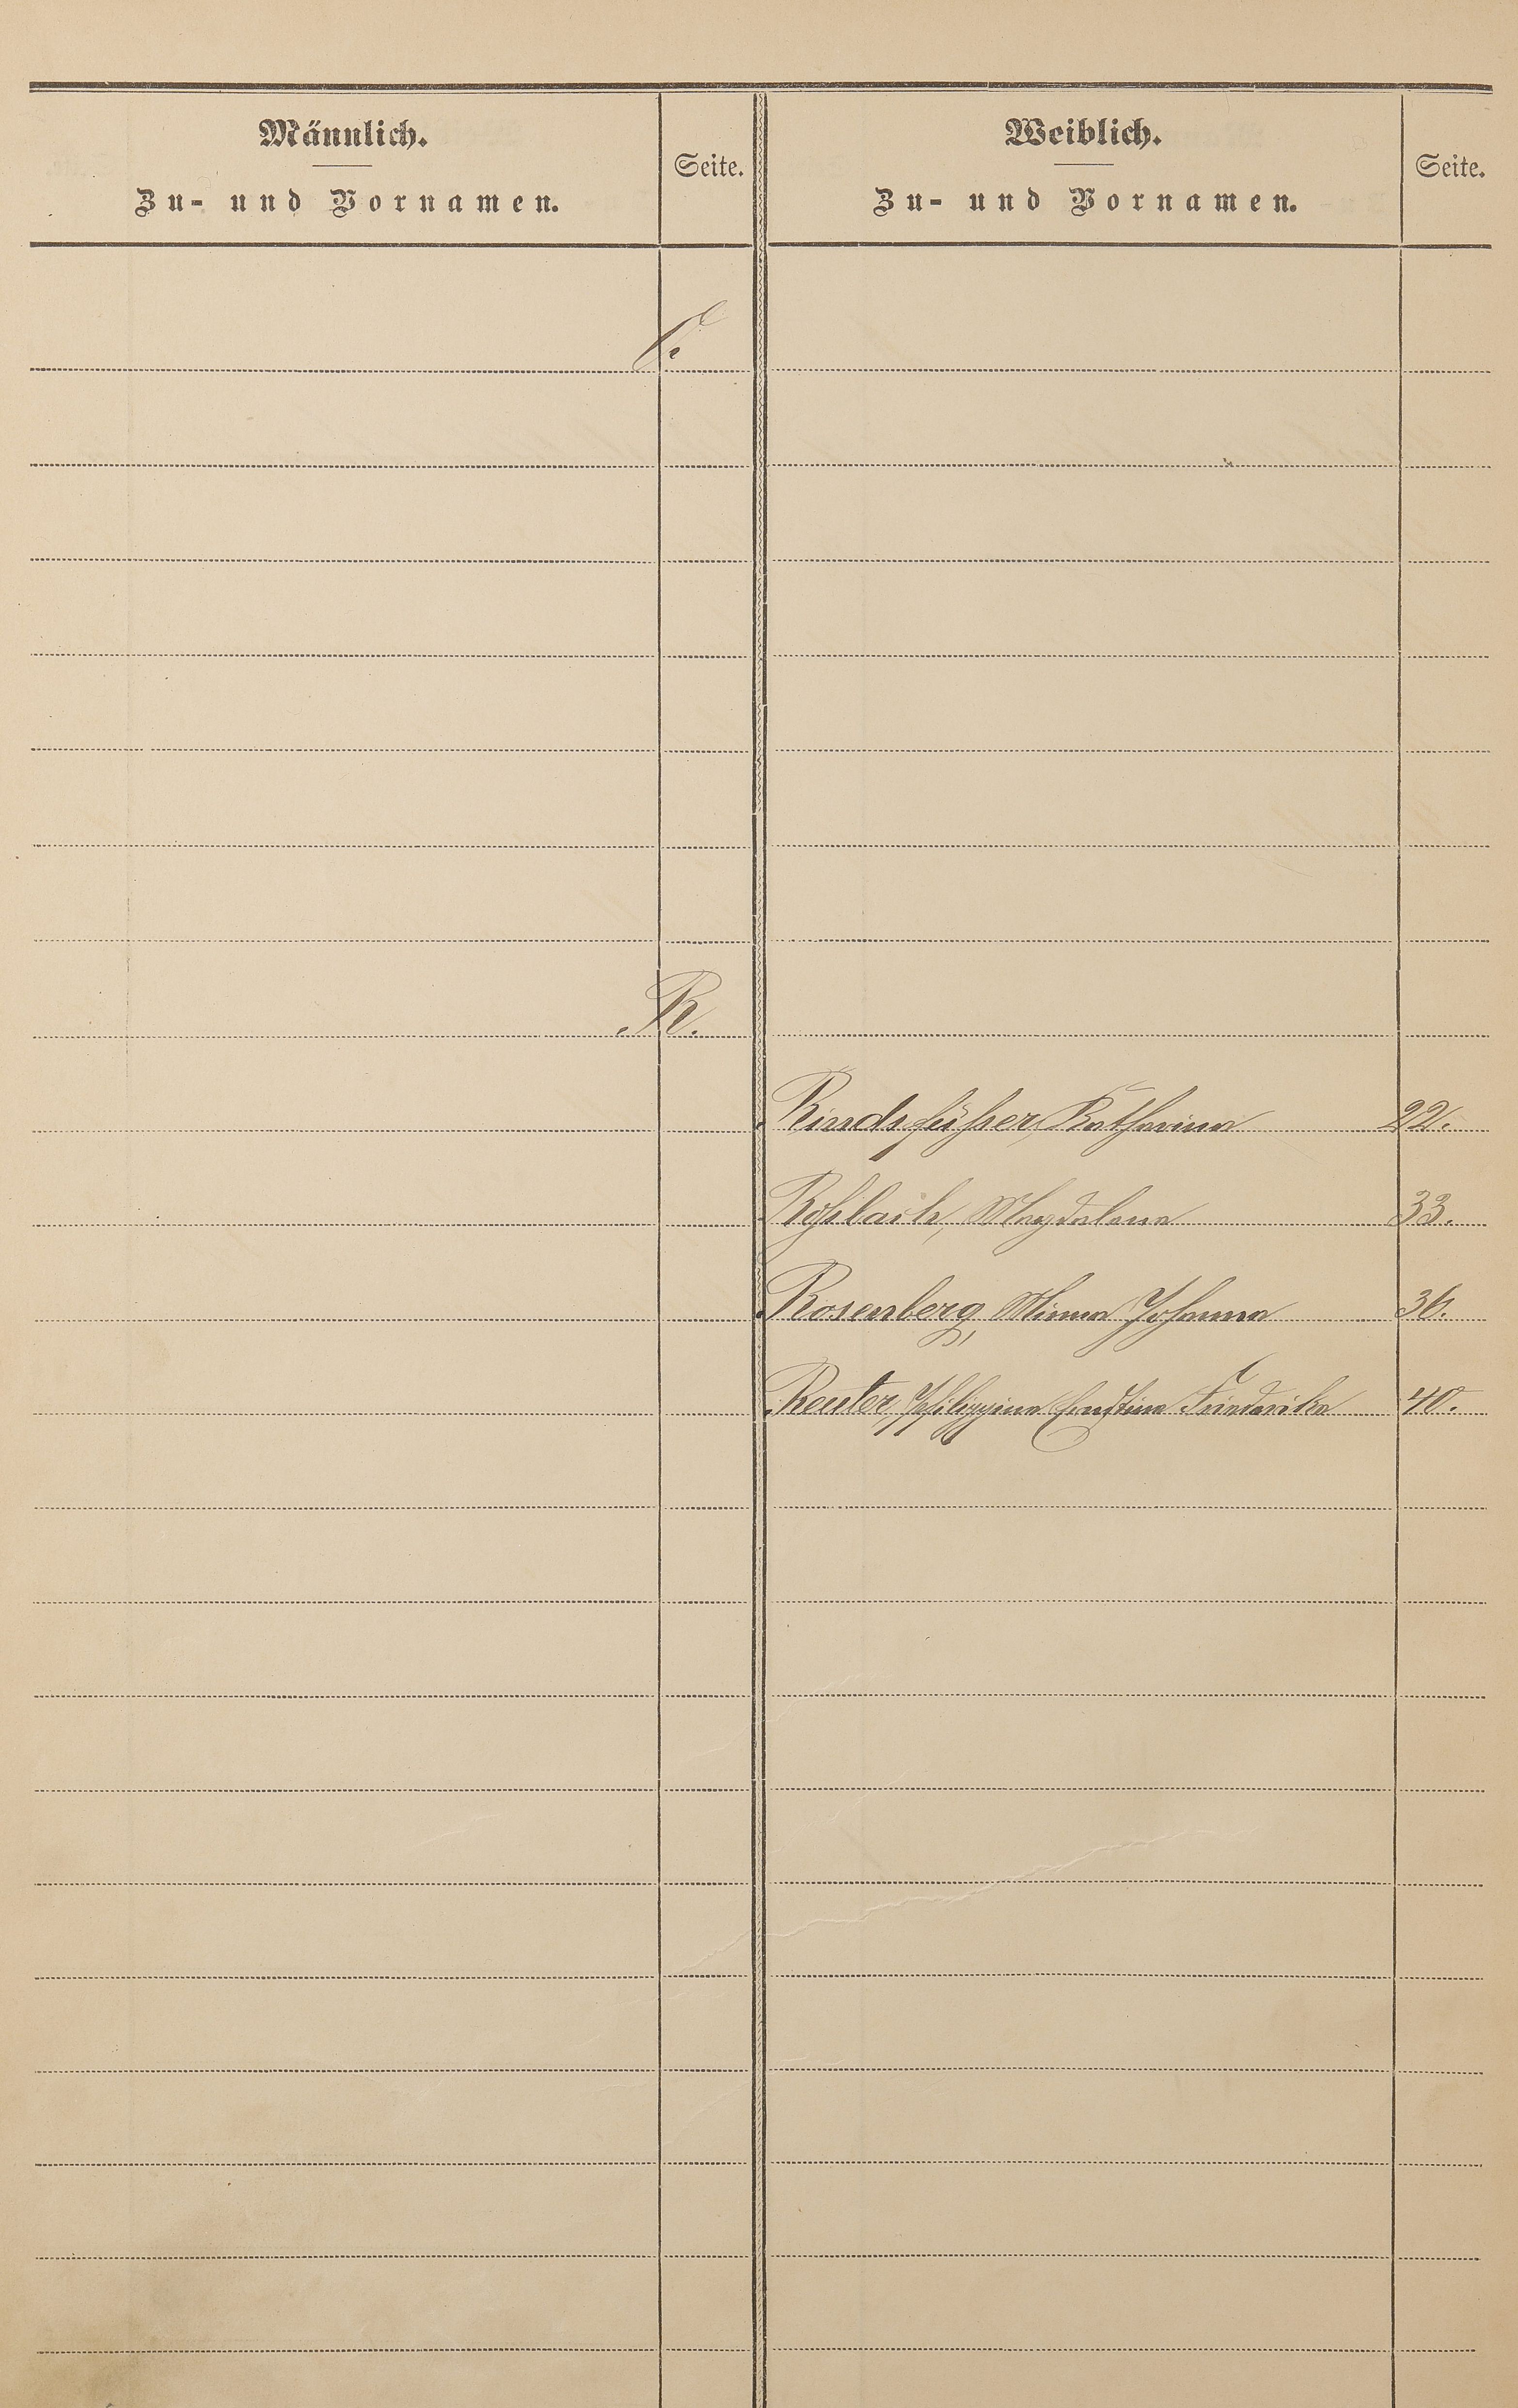 Männlich.
Zu- und Vornamen.
Seite.
Weiblich.
Zu- und Vornamen.
Seite.
R.
Rindsfüßer, Katharina 22.
Roßbach, Magdalena 33.
Rosenberg, Minna Johanna 36.
Reuter, Philippine Ernstine Friederike 40.